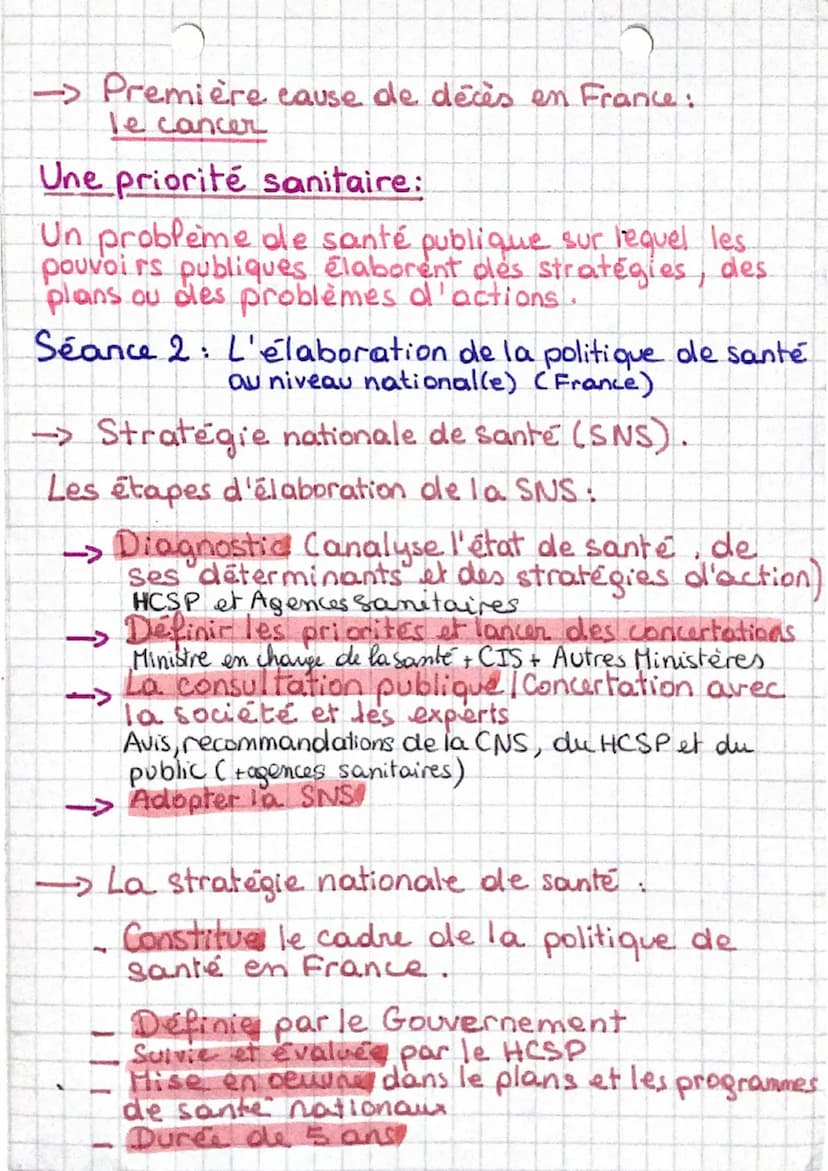 → Première cause de décès en France :
le cancer
Une priorité sanitaire :
Un problème de santé publique sur lequel les
pouvoirs publiques élaborent des stratégies, des
plans ou des problèmes d'actions.
Séance 2 : L'élaboration de la politique de santé
au niveau national(e) (France)
→ Stratégie nationale de santé (SNS).
Les étapes d'élaboration de la SNS :
→ Diagnostic (analyse l'état de santé, de
ses déterminants et des stratégies d'action)
HCSP et Agences sanitaires
→ Définir les priorités et lancer des concertations
Ministre en charge de la santé + CIS + Autres Ministères
→ La consultation publique / Concertation avec
la société et des experts
Avis, recommandations de la CNS, du HCSP et du
public (+agences sanitaires)
→ Adopter la SNS
→ La stratégie nationale de santé :
- Constitue le cadre de la politique de
santé en France.
- Définie par le Gouvernement
- Suivie et évaluée par le HCSP
- Mise en oeuvre dans le plans et les programmes
de santé nationaux
- Durée de 5 ans